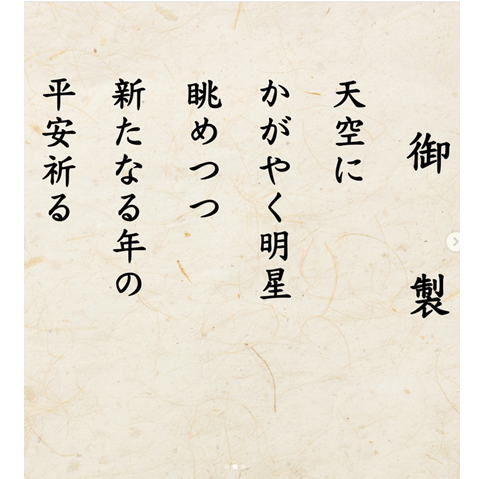 御製
天空に
かがやく明星
眺めつつ
新たなる年の
平安祈る